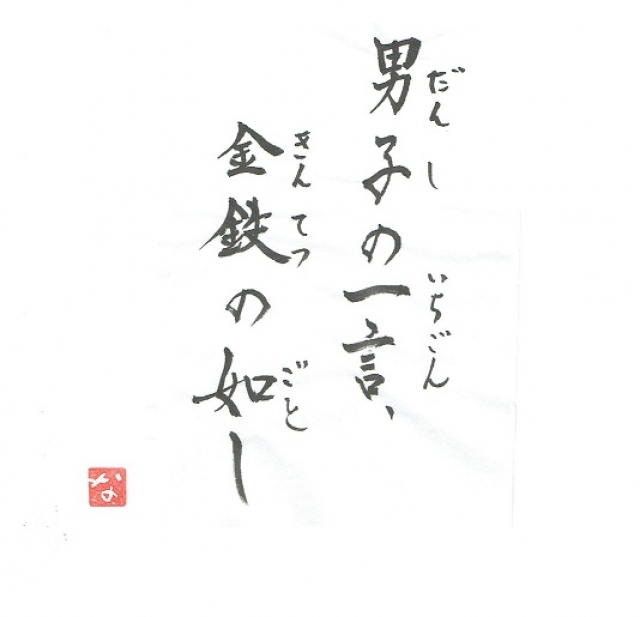 男子の一言、
だんし いちごん
金鉄の如し
きんてつ ごと
な